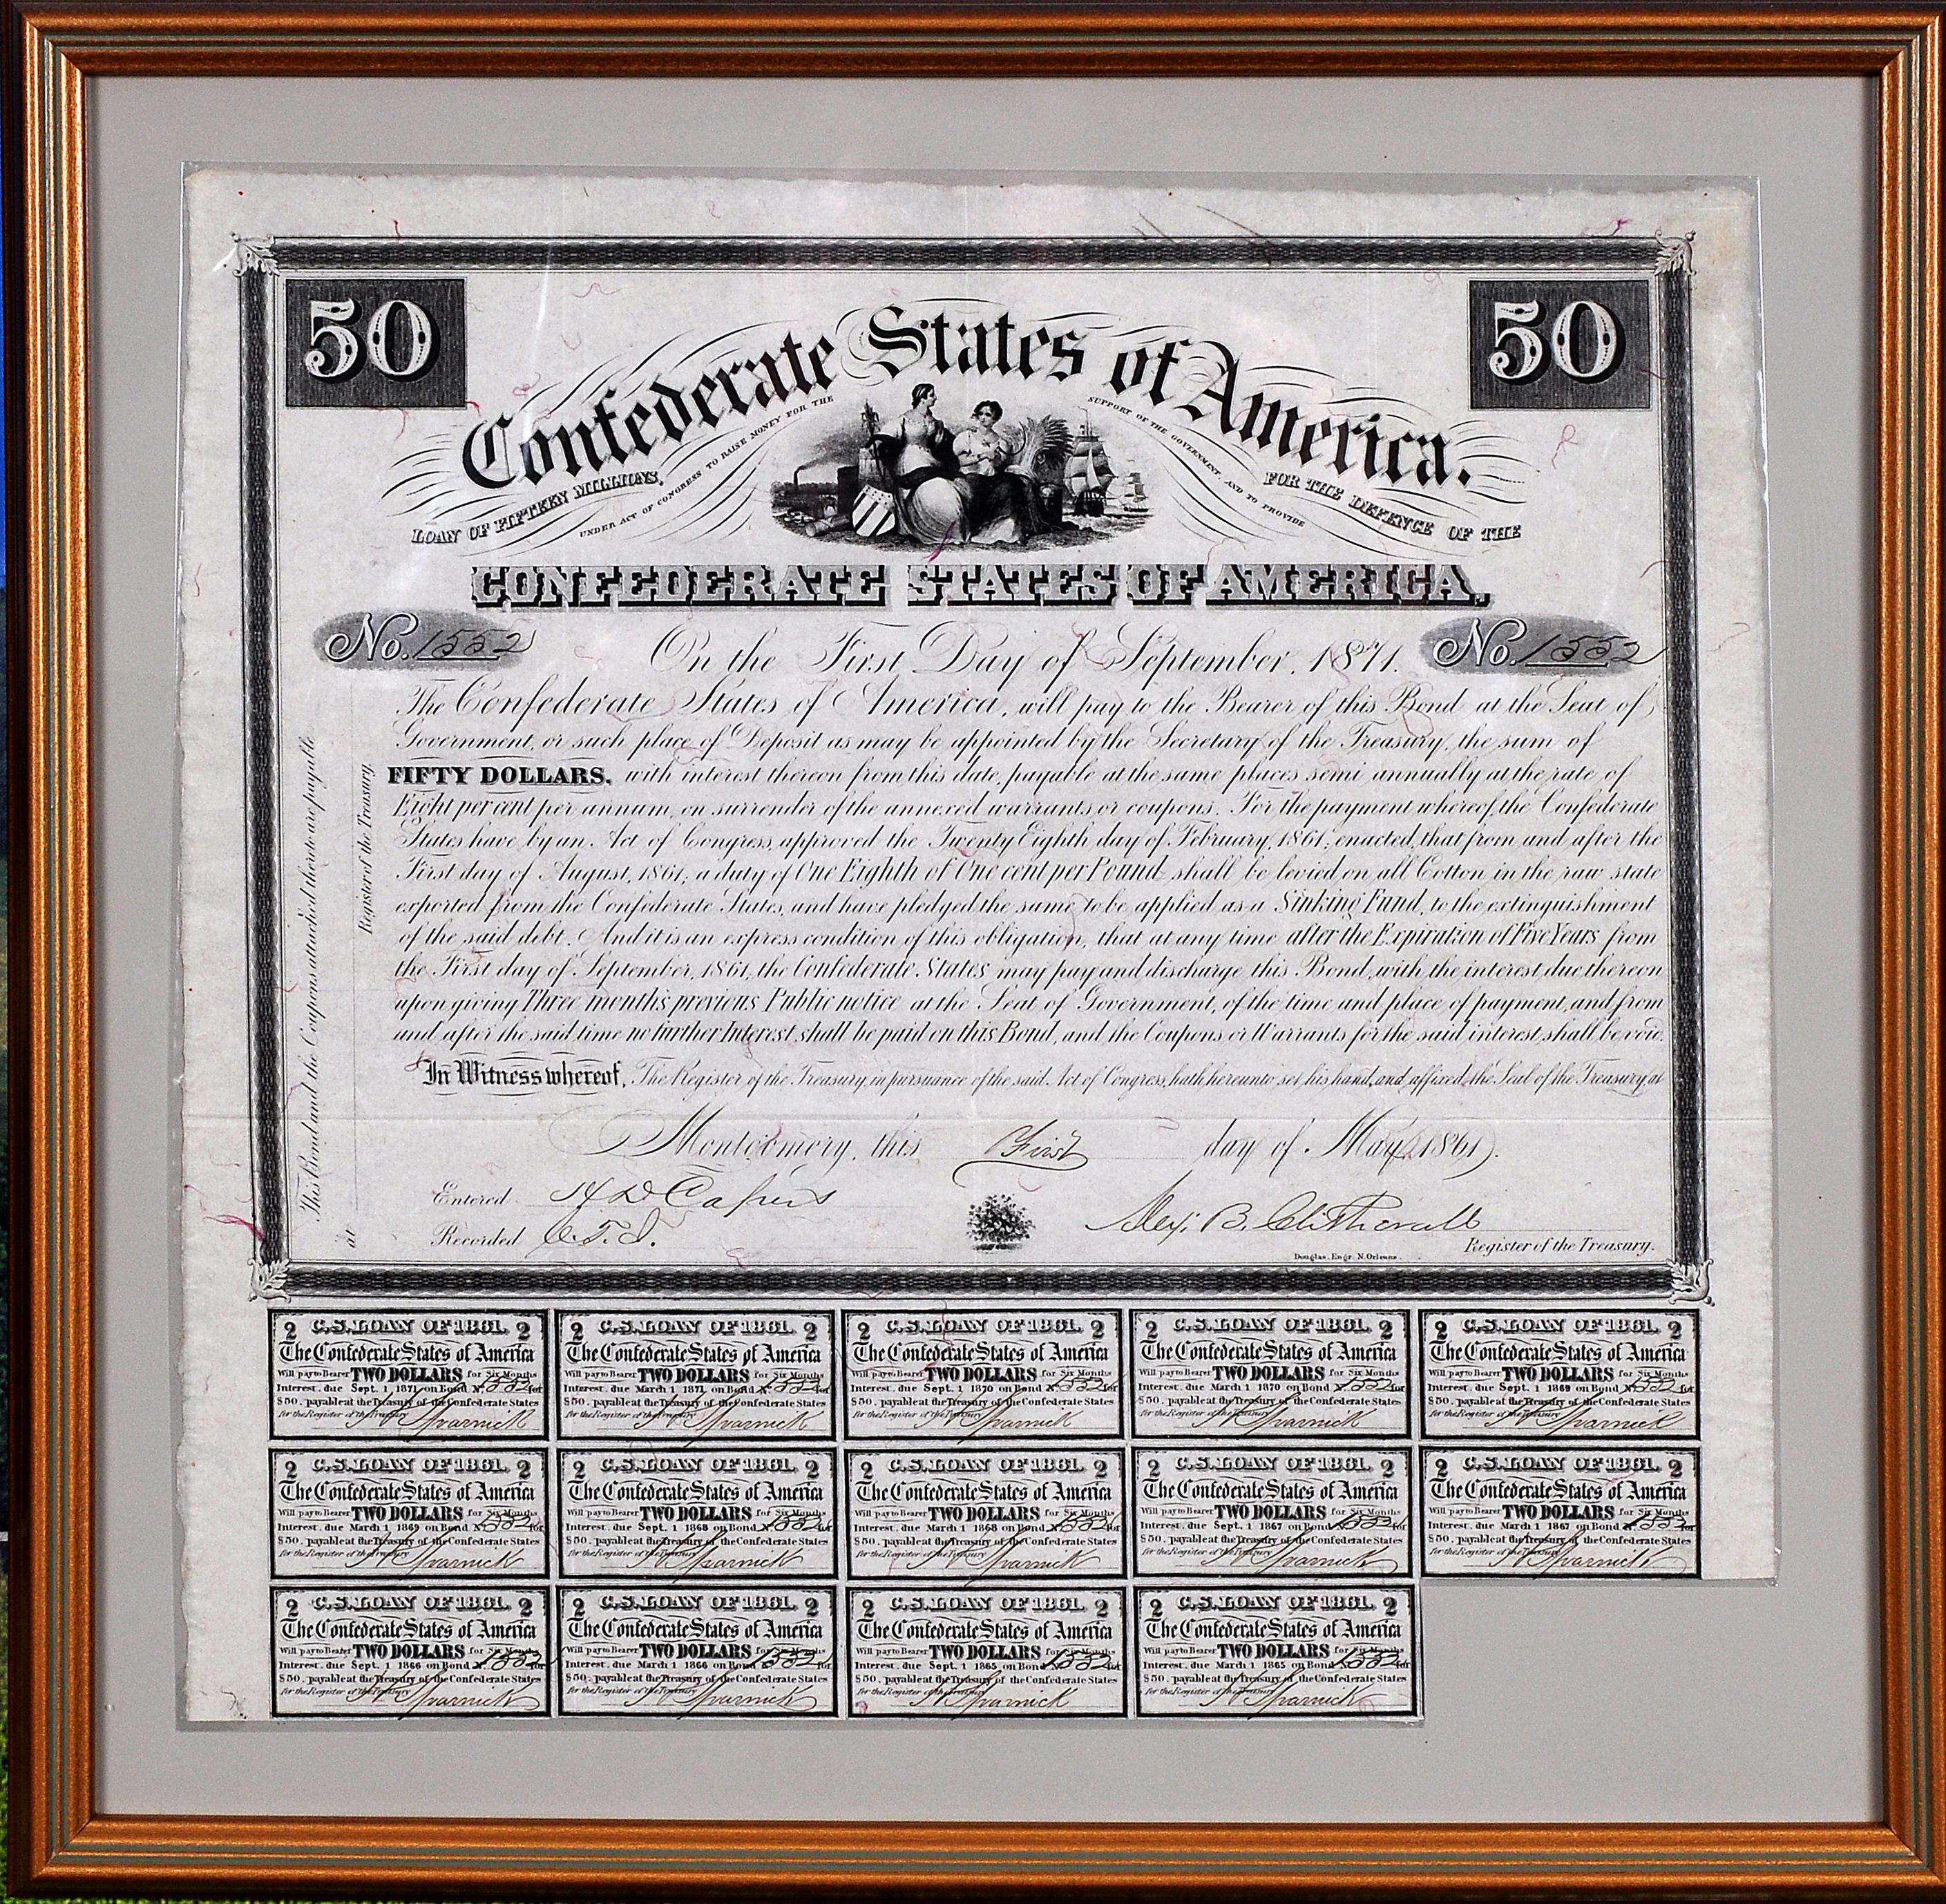 50
50
Confederate States of America.
LOAN OF FIFTEEN MILLIONS,
UNDER ACT OF CONGRESS TO RAISE MONEY FOR THE
SUPPORT OF THE GOVERNMENT AND TO PROVIDE
FOR THE DEFENCE OF THE
CONFEDERATE STATES OF AMERICA,
No. 1552
No. 1552
On the First Day of September, 1871.
The Confederate States of America, will pay to the Bearer of this Bond at the Seat of
Government, or such place of Deposit as may be appointed by the Secretary of the Treasury, the sum of
FIFTY DOLLARS, with interest thereon from this date, payable at the same places semi annually at the rate of
Eight per cent per annum, on surrender of the annexed warrants or coupons. For the payment whereof, the Confederate
States have by an Act of Congress, approved the Twenty Eighth day of February, 1861, enacted, that from and after the
First day of August, 1861, a duty of One Eighth of One cent per Pound shall be levied on all Cotton in the raw state
exported from the Confederate States, and have pledged the same to be applied as a Sinking Fund, to the extinguishment
of the said debt. And it is an express condition of this obligation, that at any time after the Expiration of Five Years from
the First day of September, 1861, the Confederate States may pay and discharge this Bond, with the interest due thereon
upon giving Three months previous Public notice at the Seat of Government, of the time and place of payment, and from
and after the said time no further Interest shall be paid on this Bond, and the Coupons or Warrants for the said interest shall be void.
In Witness whereof, The Register of the Treasury, in pursuance of the said Act of Congress, hath hereunto set his hand, and affixed the Seal of the Treasury at
Montgomery, this First day of May, 1861.
Entered H D Capers
Recorded C.T.J.
Alex. B. Clitherall
Register of the Treasury.
Douglas. Engr. N. Orleans.
This Bond and the Coupons attached thereto are payable
at
Register of the Treasury.
2 C.S. LOAN OF 1861. 2
The Confederate States of America
Will pay to Bearer TWO DOLLARS for Six Months
Interest, due Sept. 1 1871 on Bond N. 1552 for
$50. payable at the Treasury of the Confederate States
for the Register of the Treasury
2 C.S. LOAN OF 1861. 2
The Confederate States of America
Will pay to Bearer TWO DOLLARS for Six Months
Interest, due March 1 1871 on Bond N. 1552 for
$50. payable at the Treasury of the Confederate States
for the Register of the Treasury
2 C.S. LOAN OF 1861. 2
The Confederate States of America
Will pay to Bearer TWO DOLLARS for Six Months
Interest, due Sept. 1 1870 on Bond N. 1552 for
$50. payable at the Treasury of the Confederate States
for the Register of the Treasury
2 C.S. LOAN OF 1861. 2
The Confederate States of America
Will pay to Bearer TWO DOLLARS for Six Months
Interest, due March 1 1870 on Bond N. 1552 for
$50. payable at the Treasury of the Confederate States
for the Register of the Treasury
2 C.S. LOAN OF 1861. 2
The Confederate States of America
Will pay to Bearer TWO DOLLARS for Six Months
Interest, due Sept. 1 1869 on Bond N. 1552 for
$50. payable at the Treasury of the Confederate States
for the Register of the Treasury
2 C.S. LOAN OF 1861. 2
The Confederate States of America
Will pay to Bearer TWO DOLLARS for Six Months
Interest, due March 1 1869 on Bond N. 1552 for
$50. payable at the Treasury of the Confederate States
for the Register of the Treasury
2 C.S. LOAN OF 1861. 2
The Confederate States of America
Will pay to Bearer TWO DOLLARS for Six Months
Interest, due Sept. 1 1868 on Bond N. 1552 for
$50. payable at the Treasury of the Confederate States
for the Register of the Treasury
2 C.S. LOAN OF 1861. 2
The Confederate States of America
Will pay to Bearer TWO DOLLARS for Six Months
Interest, due March 1 1868 on Bond N. 1552 for
$50. payable at the Treasury of the Confederate States
for the Register of the Treasury
2 C.S. LOAN OF 1861. 2
The Confederate States of America
Will pay to Bearer TWO DOLLARS for Six Months
Interest, due Sept. 1 1867 on Bond N. 1552 for
$50. payable at the Treasury of the Confederate States
for the Register of the Treasury
2 C.S. LOAN OF 1861. 2
The Confederate States of America
Will pay to Bearer TWO DOLLARS for Six Months
Interest, due March 1 1867 on Bond N. 1552 for
$50. payable at the Treasury of the Confederate States
for the Register of the Treasury
2 C.S. LOAN OF 1861. 2
The Confederate States of America
Will pay to Bearer TWO DOLLARS for Six Months
Interest, due Sept. 1 1866 on Bond N. 1552 for
$50. payable at the Treasury of the Confederate States
for the Register of the Treasury
2 C.S. LOAN OF 1861. 2
The Confederate States of America
Will pay to Bearer TWO DOLLARS for Six Months
Interest, due March 1 1866 on Bond N. 1552 for
$50. payable at the Treasury of the Confederate States
for the Register of the Treasury
2 C.S. LOAN OF 1861. 2
The Confederate States of America
Will pay to Bearer TWO DOLLARS for Six Months
Interest, due Sept. 1 1865 on Bond N. 1552 for
$50. payable at the Treasury of the Confederate States
for the Register of the Treasury
2 C.S. LOAN OF 1861. 2
The Confederate States of America
Will pay to Bearer TWO DOLLARS for Six Months
Interest, due March 1 1865 on Bond N. 1552 for
$50. payable at the Treasury of the Confederate States
for the Register of the Treasury